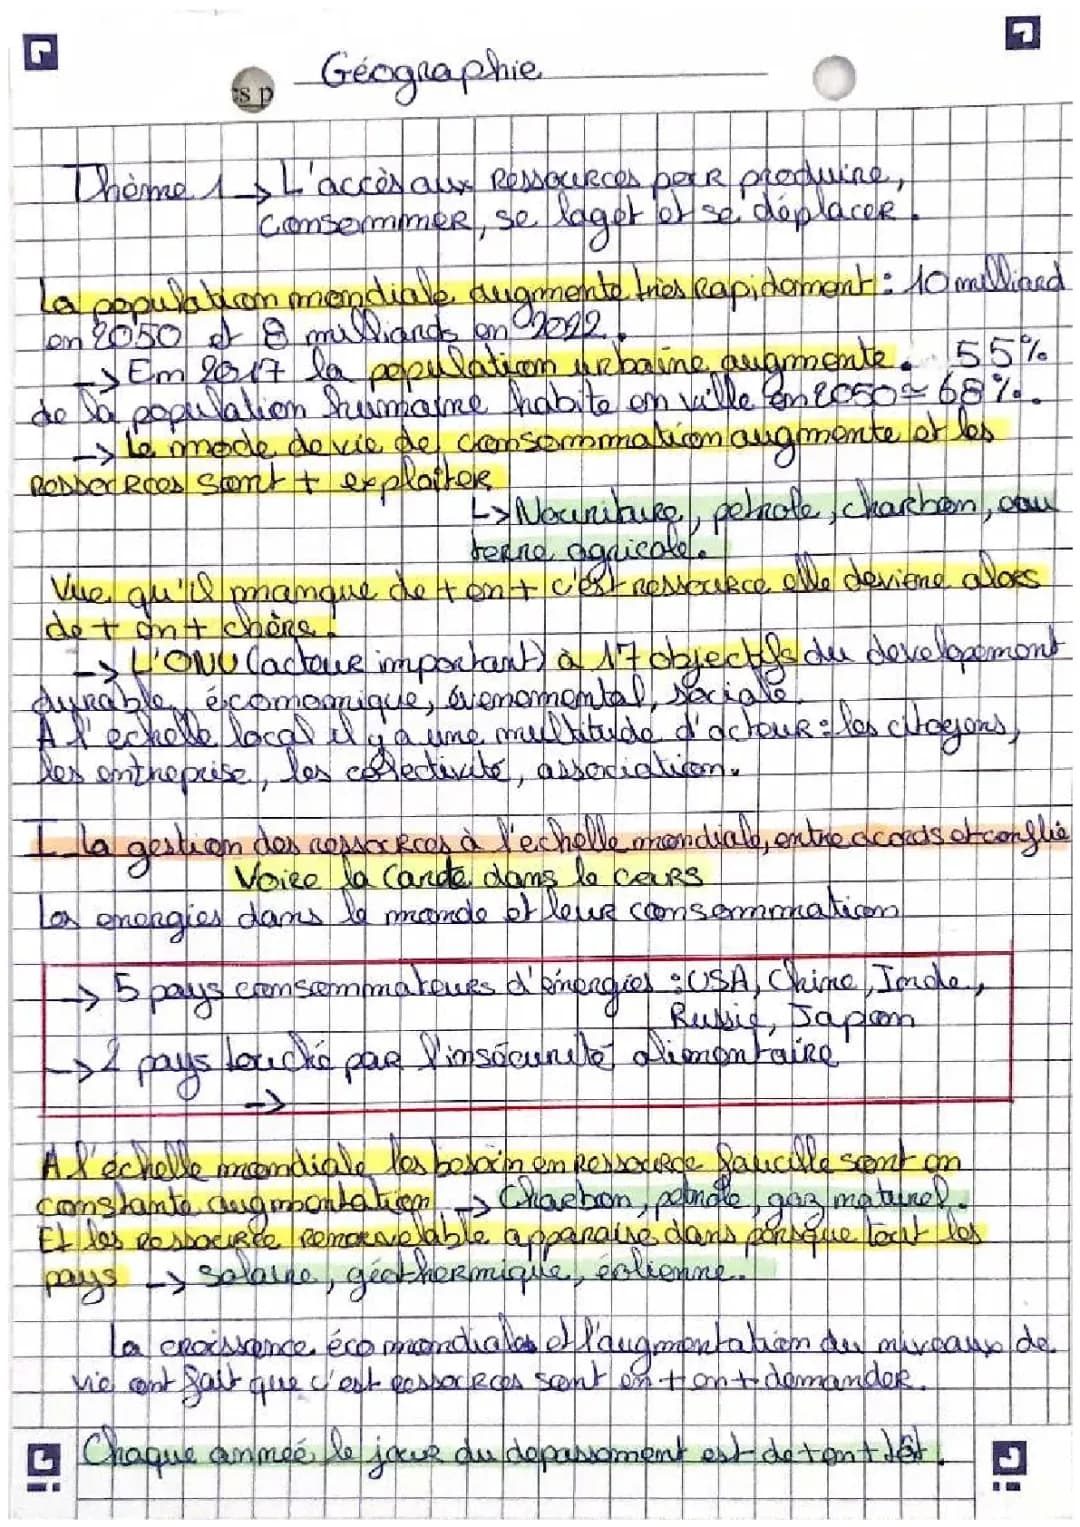 Géographie
s p
Thème 1 → L'accès aux Ressources pour produire,
consommer, se loger et se déplacer.
La population mondiale augmente très rapidement : 10 milliard
en 2050 et 8 milliards en 2022.
→ Em 2017 la population urbaine augmente. 55%
de la population humaine habite en ville en 2050 ≈ 68%.
→ Le mode de vie de consommation augmente et les
Ressources sont + exploiter
↳ Nouriture, petrole, charbon, eau
terre agricole.
Vue qu'il manque de + en + c'est ressource elle deviene alors
de + en + chère.
→ L'ONU (acteur important) à 17 objectifs du developement
durable, économique, évenomental, sociale.
A l'echelle local il y a une multitude d'acteur : les citoyens,
les entreprise, les collectivité, association.
I La gestion des ressources à l'echelle mondiale, entre acords et conflie
Voire la Carde dans le cours
Les energies dans le monde et leur consommation
→ 5 pays consommateurs d'énergies : USA, Chine, Inde,
Russie, Japon
→ 2 pays touché par l'insécurité alimentaire
→
A l'échelle mondiale les besoin en Ressource faucille sont en
constante augmentation → Charbon, petrole, gaz naturel.
Et les ressource renouvelable apparaisé dans presque tout les
pays → solaire, géothermique, éolienne.
La croissance éco mondiales et l'augmentation du niveaux de
vie ont fait que c'est ressources sont en + en + demander.
Chaque anneé le jour du depassement est de + en + tôt.